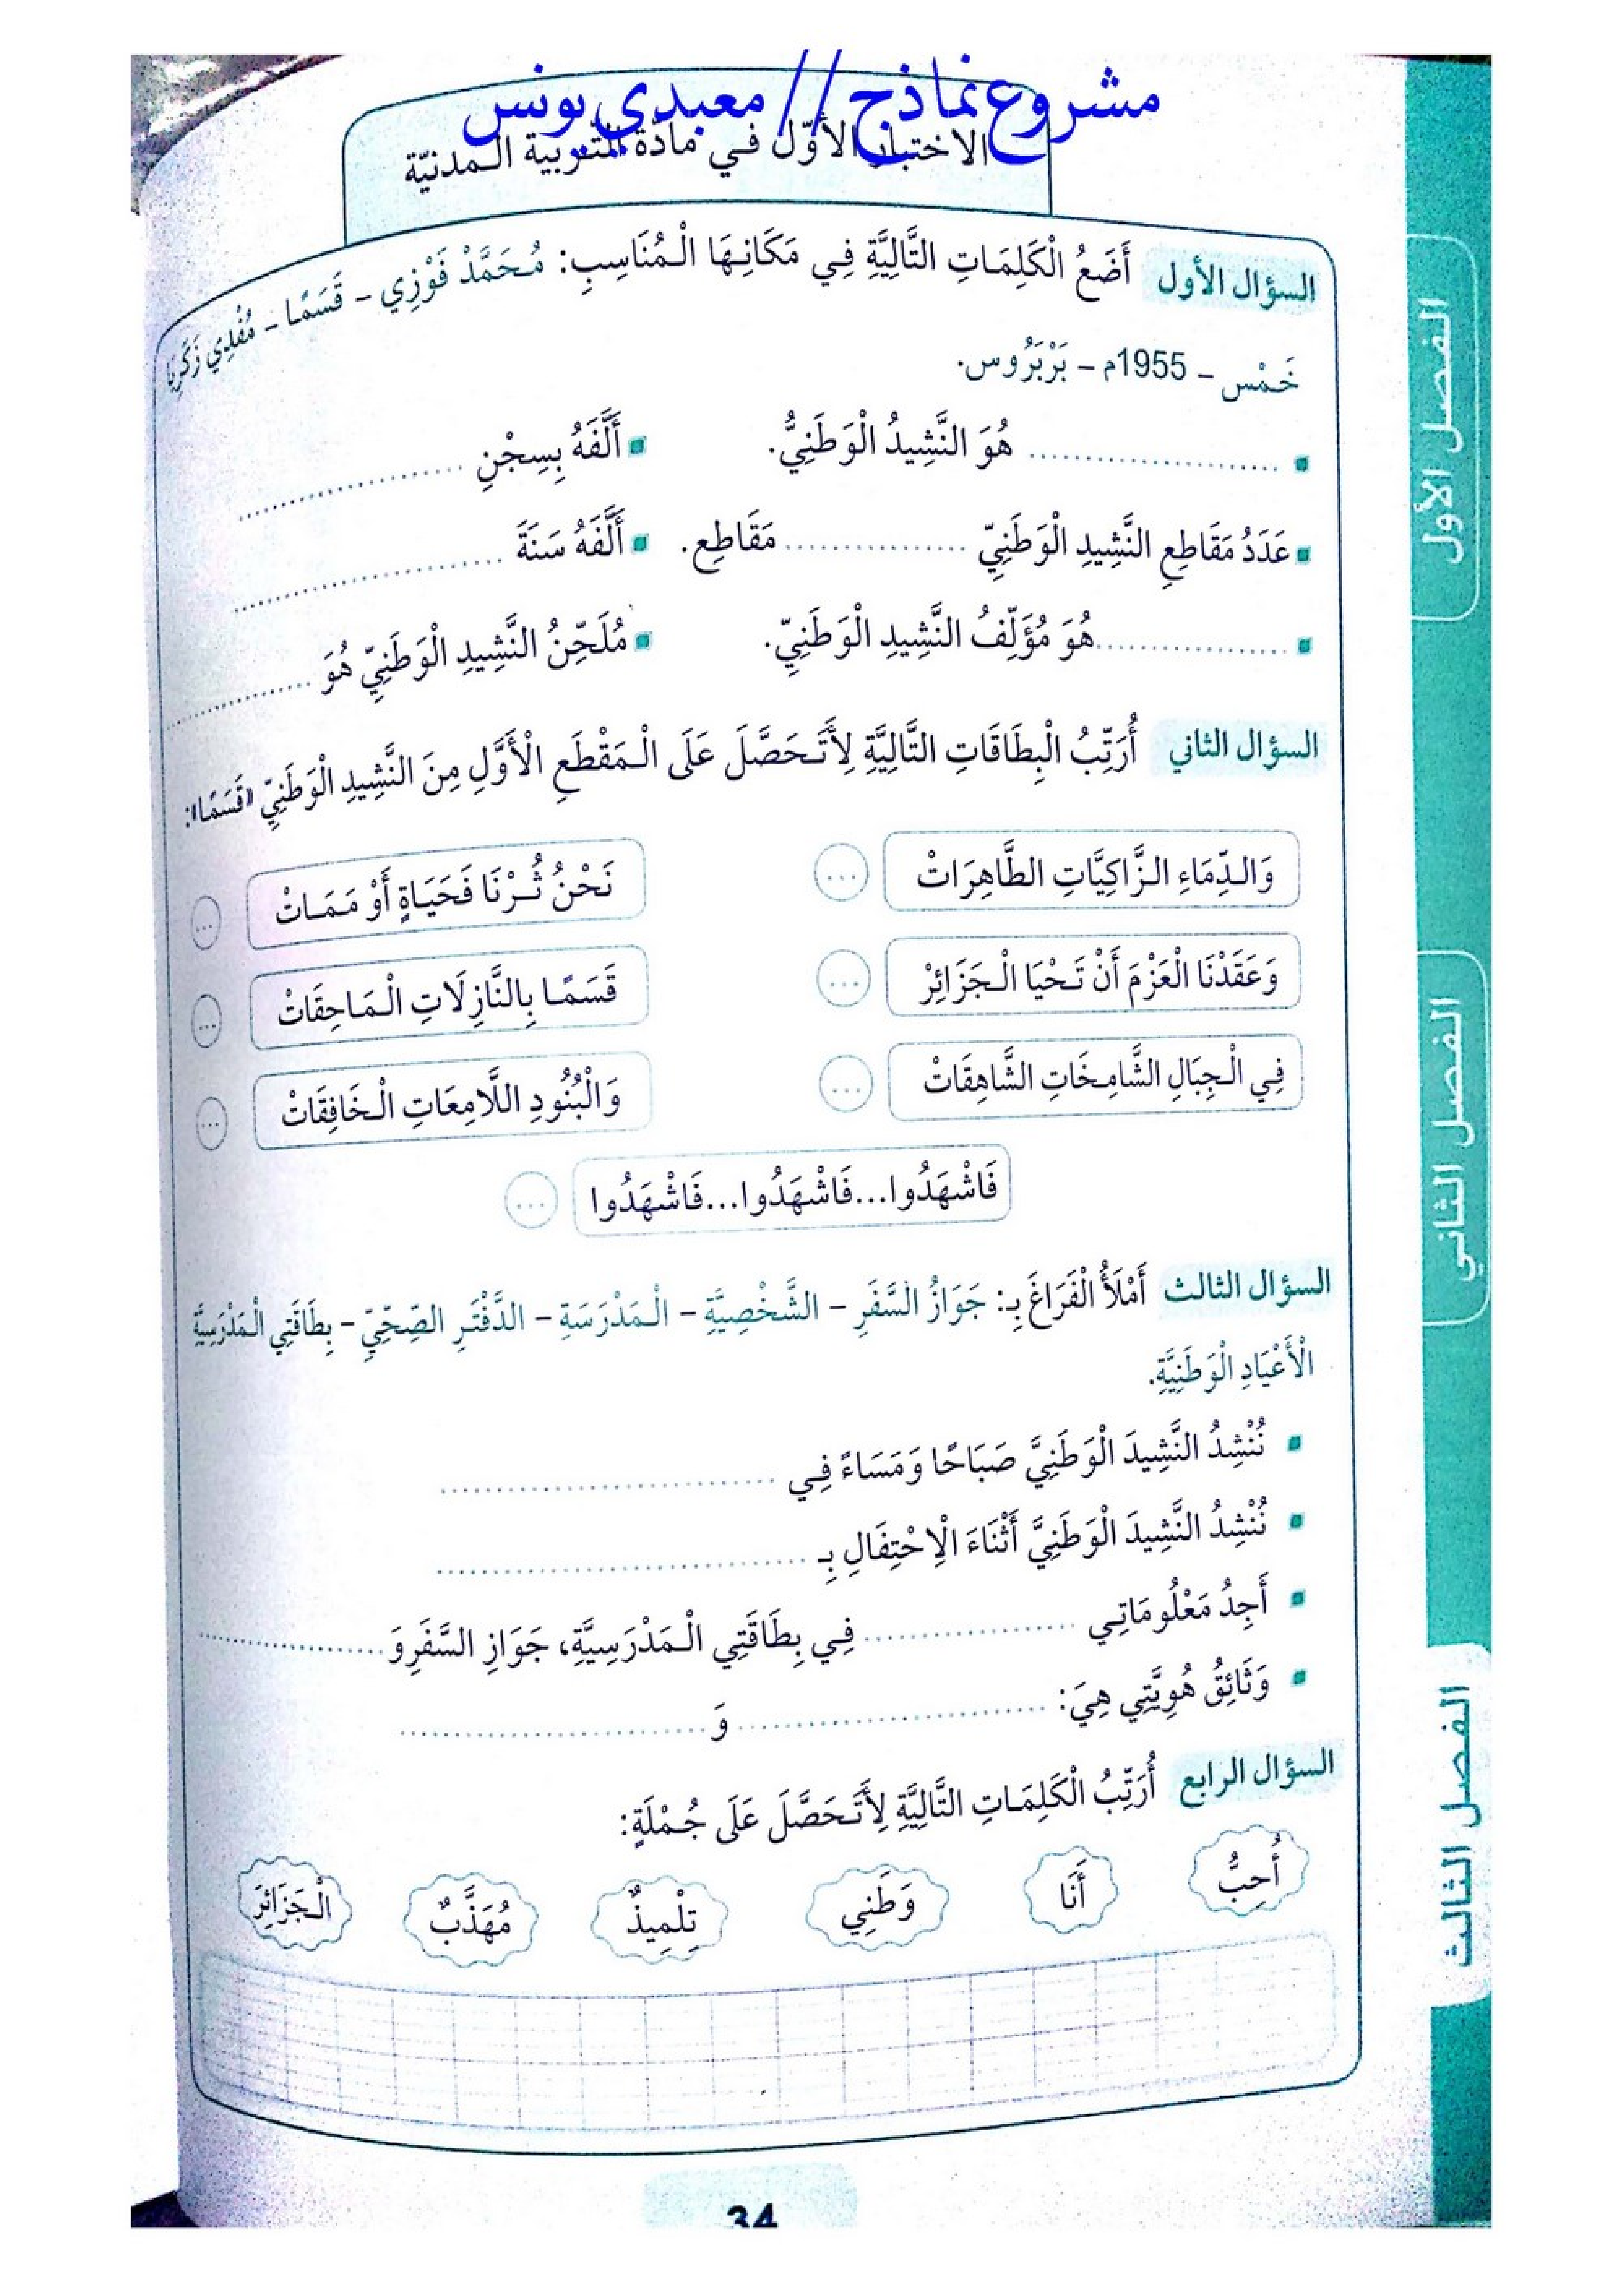 مشروع نماذج // معبدي يونس
الاختبار الأوّل في مادّة التّربية المدنيّة
السؤال الأول أَضَعُ الْكَلِمَاتِ التَّالِيَّةِ فِي مَكَانِهَا الْمُنَاسِبِ: مُحَمَّدْ فَوْزِي – قَسَمًا – مُفْدِي زَكَرِيَا
خَمْس – 1955م – بَرْبَرُوس.
▪ ........................ هُوَ النَّشِيدُ الْوَطَنِيُّ. ▪ أَلَّفَهُ بِسِجْنِ ........................
▪ عَدَدُ مَقَاطِعِ النَّشِيدِ الْوَطَنِيِّ .................. مَقَاطِع. ▪ أَلَّفَهُ سَنَةَ ........................
▪ ........................هُوَ مُؤَلِّفُ النَّشِيدِ الْوَطَنِيِّ. ▪ مُلَحِّنُ النَّشِيدِ الْوَطَنِيِّ هُوَ ..................
السؤال الثاني أُرَتِّبُ الْبِطَاقَاتِ التَّالِيَّةِ لِأَتَحَصَّلَ عَلَى الْمَقْطَعِ الْأَوَّلِ مِنَ النَّشِيدِ الْوَطَنِيِّ «قَسَمًا»:
وَالدِّمَاءِ الزَّاكِيَّاتِ الطَّاهِرَاتْ ... نَحْنُ ثُرْنَا فَحَيَاةٍ أَوْ مَمَاتْ ...
وَعَقَدْنَا الْعَزْمَ أَنْ تَحْيَا الْجَزَائِرْ ... قَسَمًا بِالنَّازِلَاتِ الْمَاحِقَاتْ ...
فِي الْجِبَالِ الشَّامِخَاتِ الشَّاهِقَاتْ ... وَالْبُنُودِ اللَّامِعَاتِ الْخَافِقَاتْ ...
فَاشْهَدُوا...فَاشْهَدُوا...فَاشْهَدُوا ...
السؤال الثالث أَمْلَأُ الْفَرَاغَ بِـ: جَوَازُ السَّفَرِ – الشَّخْصِيَّةِ – الْمَدْرَسَةِ – الدَّفْتَرِ الصِّحِّيِّ – بِطَاقَتِي الْمَدْرَسِيَّةِ
الْأَعْيَادِ الْوَطَنِيَّةِ.
▪ نُنْشِدُ النَّشِيدَ الْوَطَنِيَّ صَبَاحًا وَمَسَاءً فِي ..............................
▪ نُنْشِدُ النَّشِيدَ الْوَطَنِيَّ أَثْنَاءَ الْاِحْتِفَالِ بِـ ..............................
▪ أَجِدُ مَعْلُومَاتِي ........................ فِي بِطَاقَتِي الْمَدْرَسِيَّةِ، جَوَازِ السَّفَرِ وَ..................
▪ وَثَائِقُ هُوِيَّتِي هِيَ: .............................. وَ ..............................
السؤال الرابع أُرَتِّبُ الْكَلِمَاتِ التَّالِيَّةِ لِأَتَحَصَّلَ عَلَى جُمْلَةٍ:
أُحِبُّ أَنَا وَطَنِي تِلْمِيذٌ مُهَذَّبٌ الْجَزَائِرَ
34
الفصل الأول
الفصل الثاني
الفصل الثالث